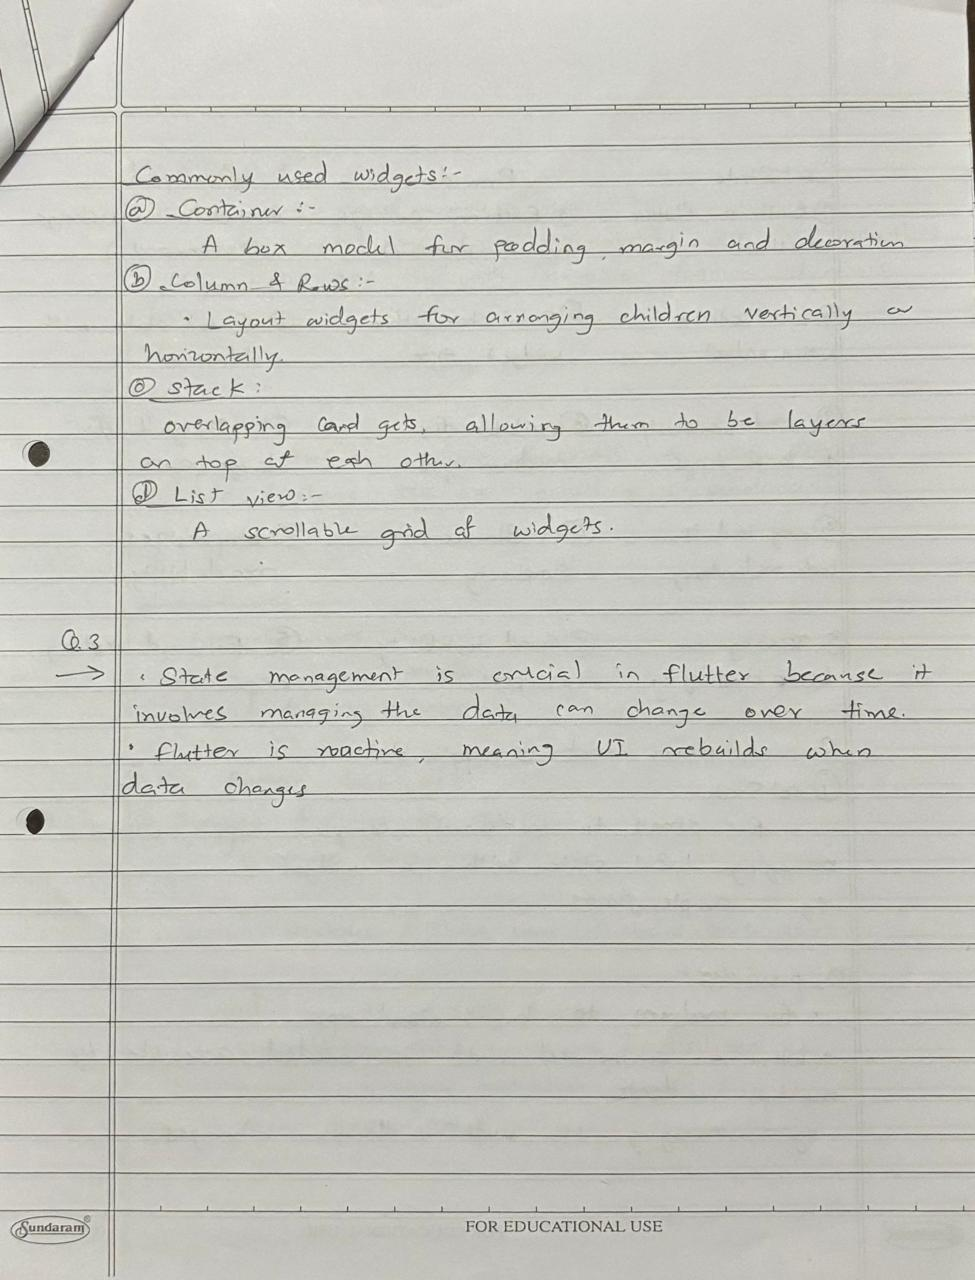 Commonly used widgets:-
(a) Container :-
A box model for padding, margin and decoration
(b) Column & Rows:-
• Layout widgets for arranging children vertically or
horizontally.
(c) Stack:
overlapping Card gets, allowing them to be layers
on top of each other.
(d) List view:-
A scrollable grid of widgets.
Q.3
→ • State management is crucial in flutter because it
involves managing the data can change over time.
• flutter is reactive, meaning UI rebuilds when
data changes
Sundaram®
FOR EDUCATIONAL USE